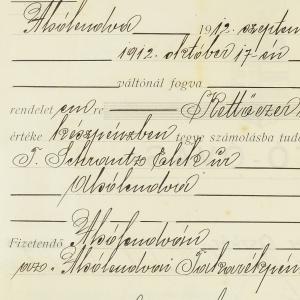 Alsólendva 1912. szeptem
1912. október 17-én
váltónál fogva
rendelet em re Kettőezer
értéke készpénzben tegye számolásba tudó
T. Schwantz Elek úr
Alsólendva
Fizetendő Alsólendván
Alsólendvai Takarékpén